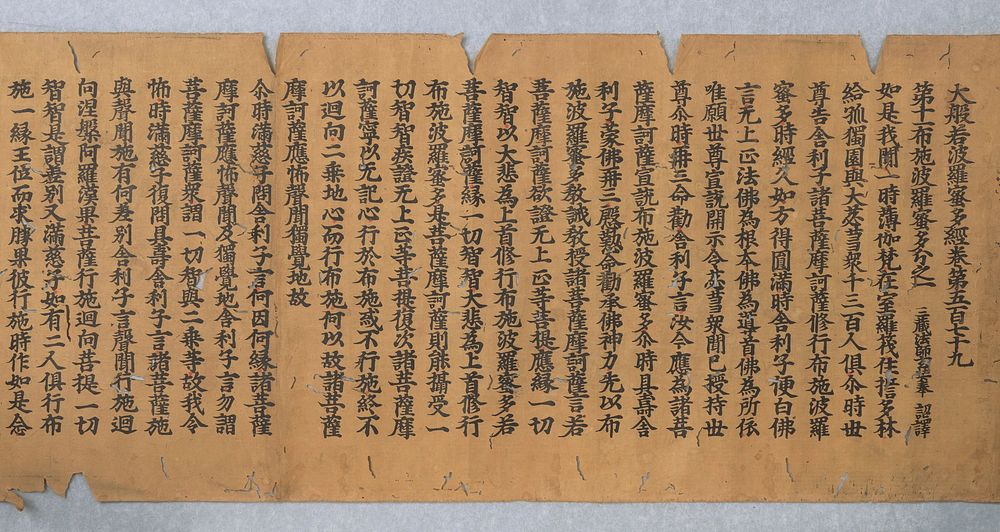 大般若波羅蜜多經卷第五百七十九
第十一布施波羅蜜多分之一 三藏法師玄奘奉 詔譯
如是我聞一時薄伽梵在室羅筏住誓多林
給孤獨園與大苾芻衆千二百人俱尒時世
尊告舍利子諸菩薩摩訶薩修行布施波羅
蜜多時經久如方得圓滿時舍利子便白佛
言无上正法佛為根本佛為道首佛為所依
唯願世尊宣說開示令苾芻衆聞已授持世
尊尒時再三命勸舍利子言汝今應為諸菩
薩摩訶薩宣說布施波羅蜜多尒時具壽舍
利子蒙佛再三慇懃命勸承佛神力先以布
施波羅蜜多教誡教授諸菩薩摩訶薩言若
菩薩摩訶薩欲證无上正等菩提應緣一切
智智以大悲為上首修行布施波羅蜜多若
菩薩摩訶薩緣一切智智大悲為上首修行
布施波羅蜜多是菩薩摩訶薩則能攝受一
切智智疾證无上正等菩提復次諸菩薩摩
訶薩寧以无記心行於布施或不行施終不
以迴向二乘地心而行布施何以故諸菩薩
摩訶薩應怖聲聞獨覺地故
尒時滿慈子問舍利子言何因何緣諸菩薩
摩訶薩應怖聲聞及獨覺地舍利子言勿謂
菩薩摩訶薩衆謂一切智與二乘等故我令
怖時滿慈子復問具壽舍利子言諸菩薩施
與聲聞施有何差別舍利子言聲聞行施迴
向涅槃阿羅漢果菩薩行施迴向菩提一切
智智是謂差別又滿慈子如有二人俱行布
施一緣王位而求勝果彼行施時作如是念